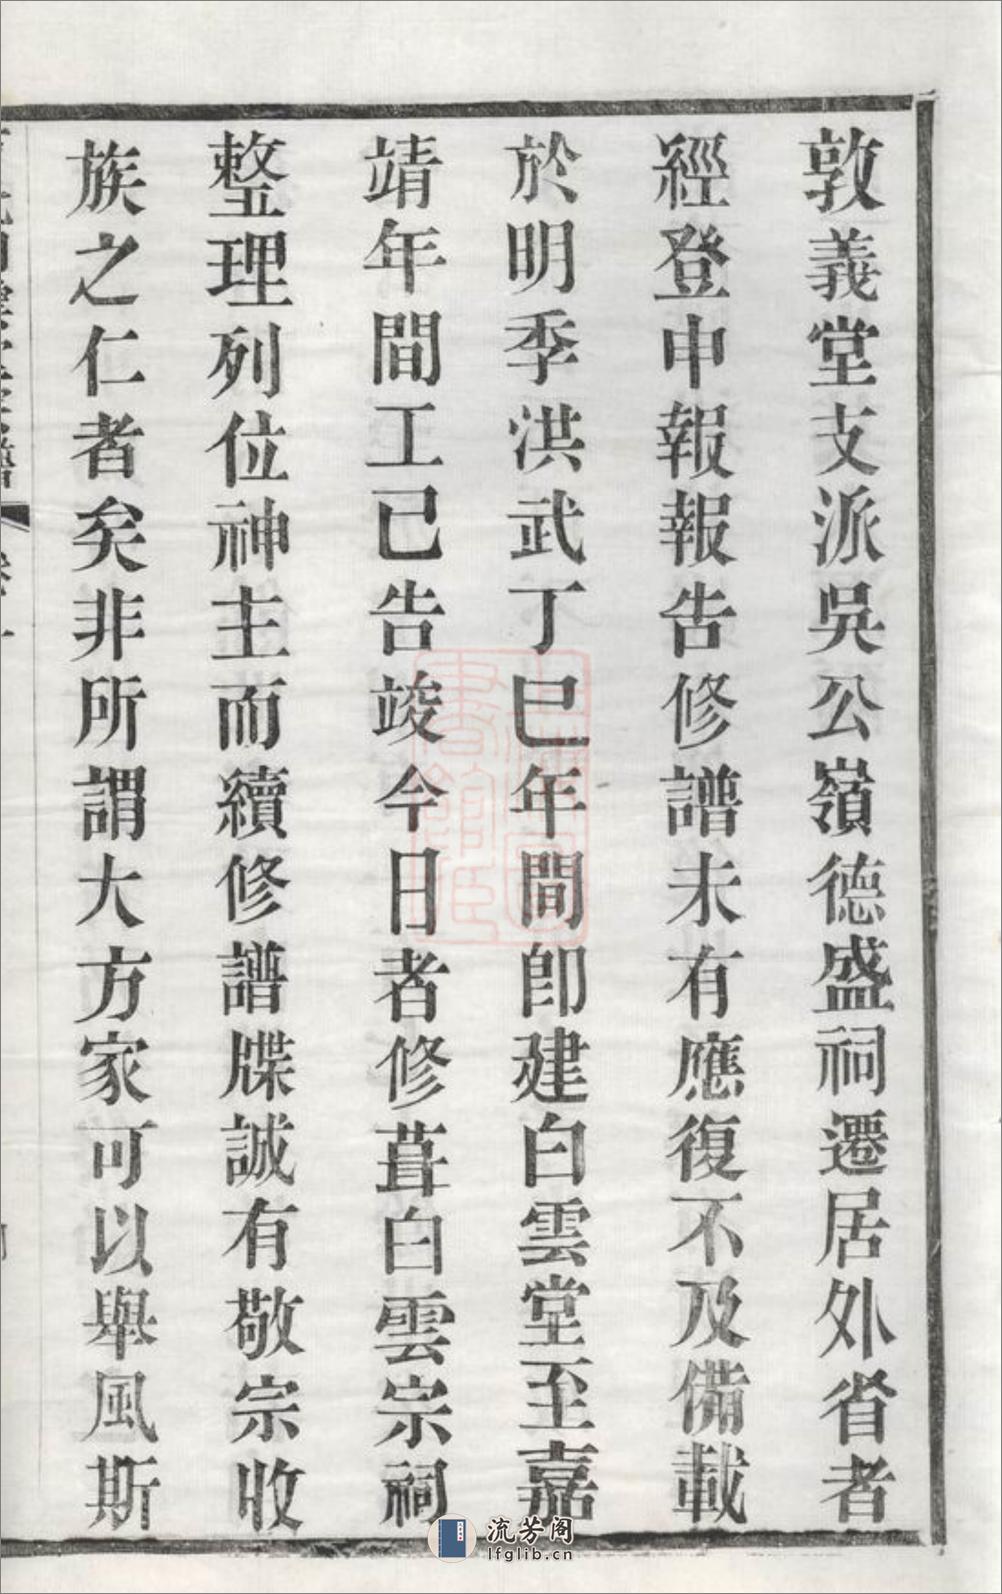 敦義堂支派吳公嶺德盛祠遷居外省者
經登申報報告修譜未有應復不及備載
於明季洪武丁巳年間即建白雲堂至嘉
靖年間工已告竣今日者修葺白雲宗祠
整理列位神主而續修譜牒誠有敬宗收
族之仁者矣非所謂大方家可以舉風斯
流芳阁
lfglib.cn